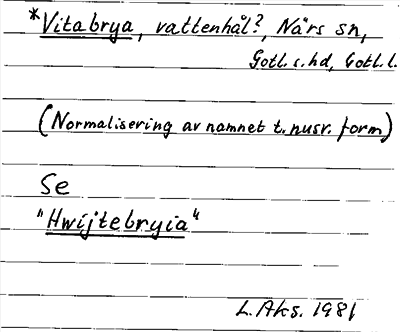 *Vitabrya, vattenhål?, Når sn,
Gotl. s. hd, Gotl. l.
(Normalisering av namnet t. nusv. form)
Se
"Hwijtebryia"
L. Aks. 1981